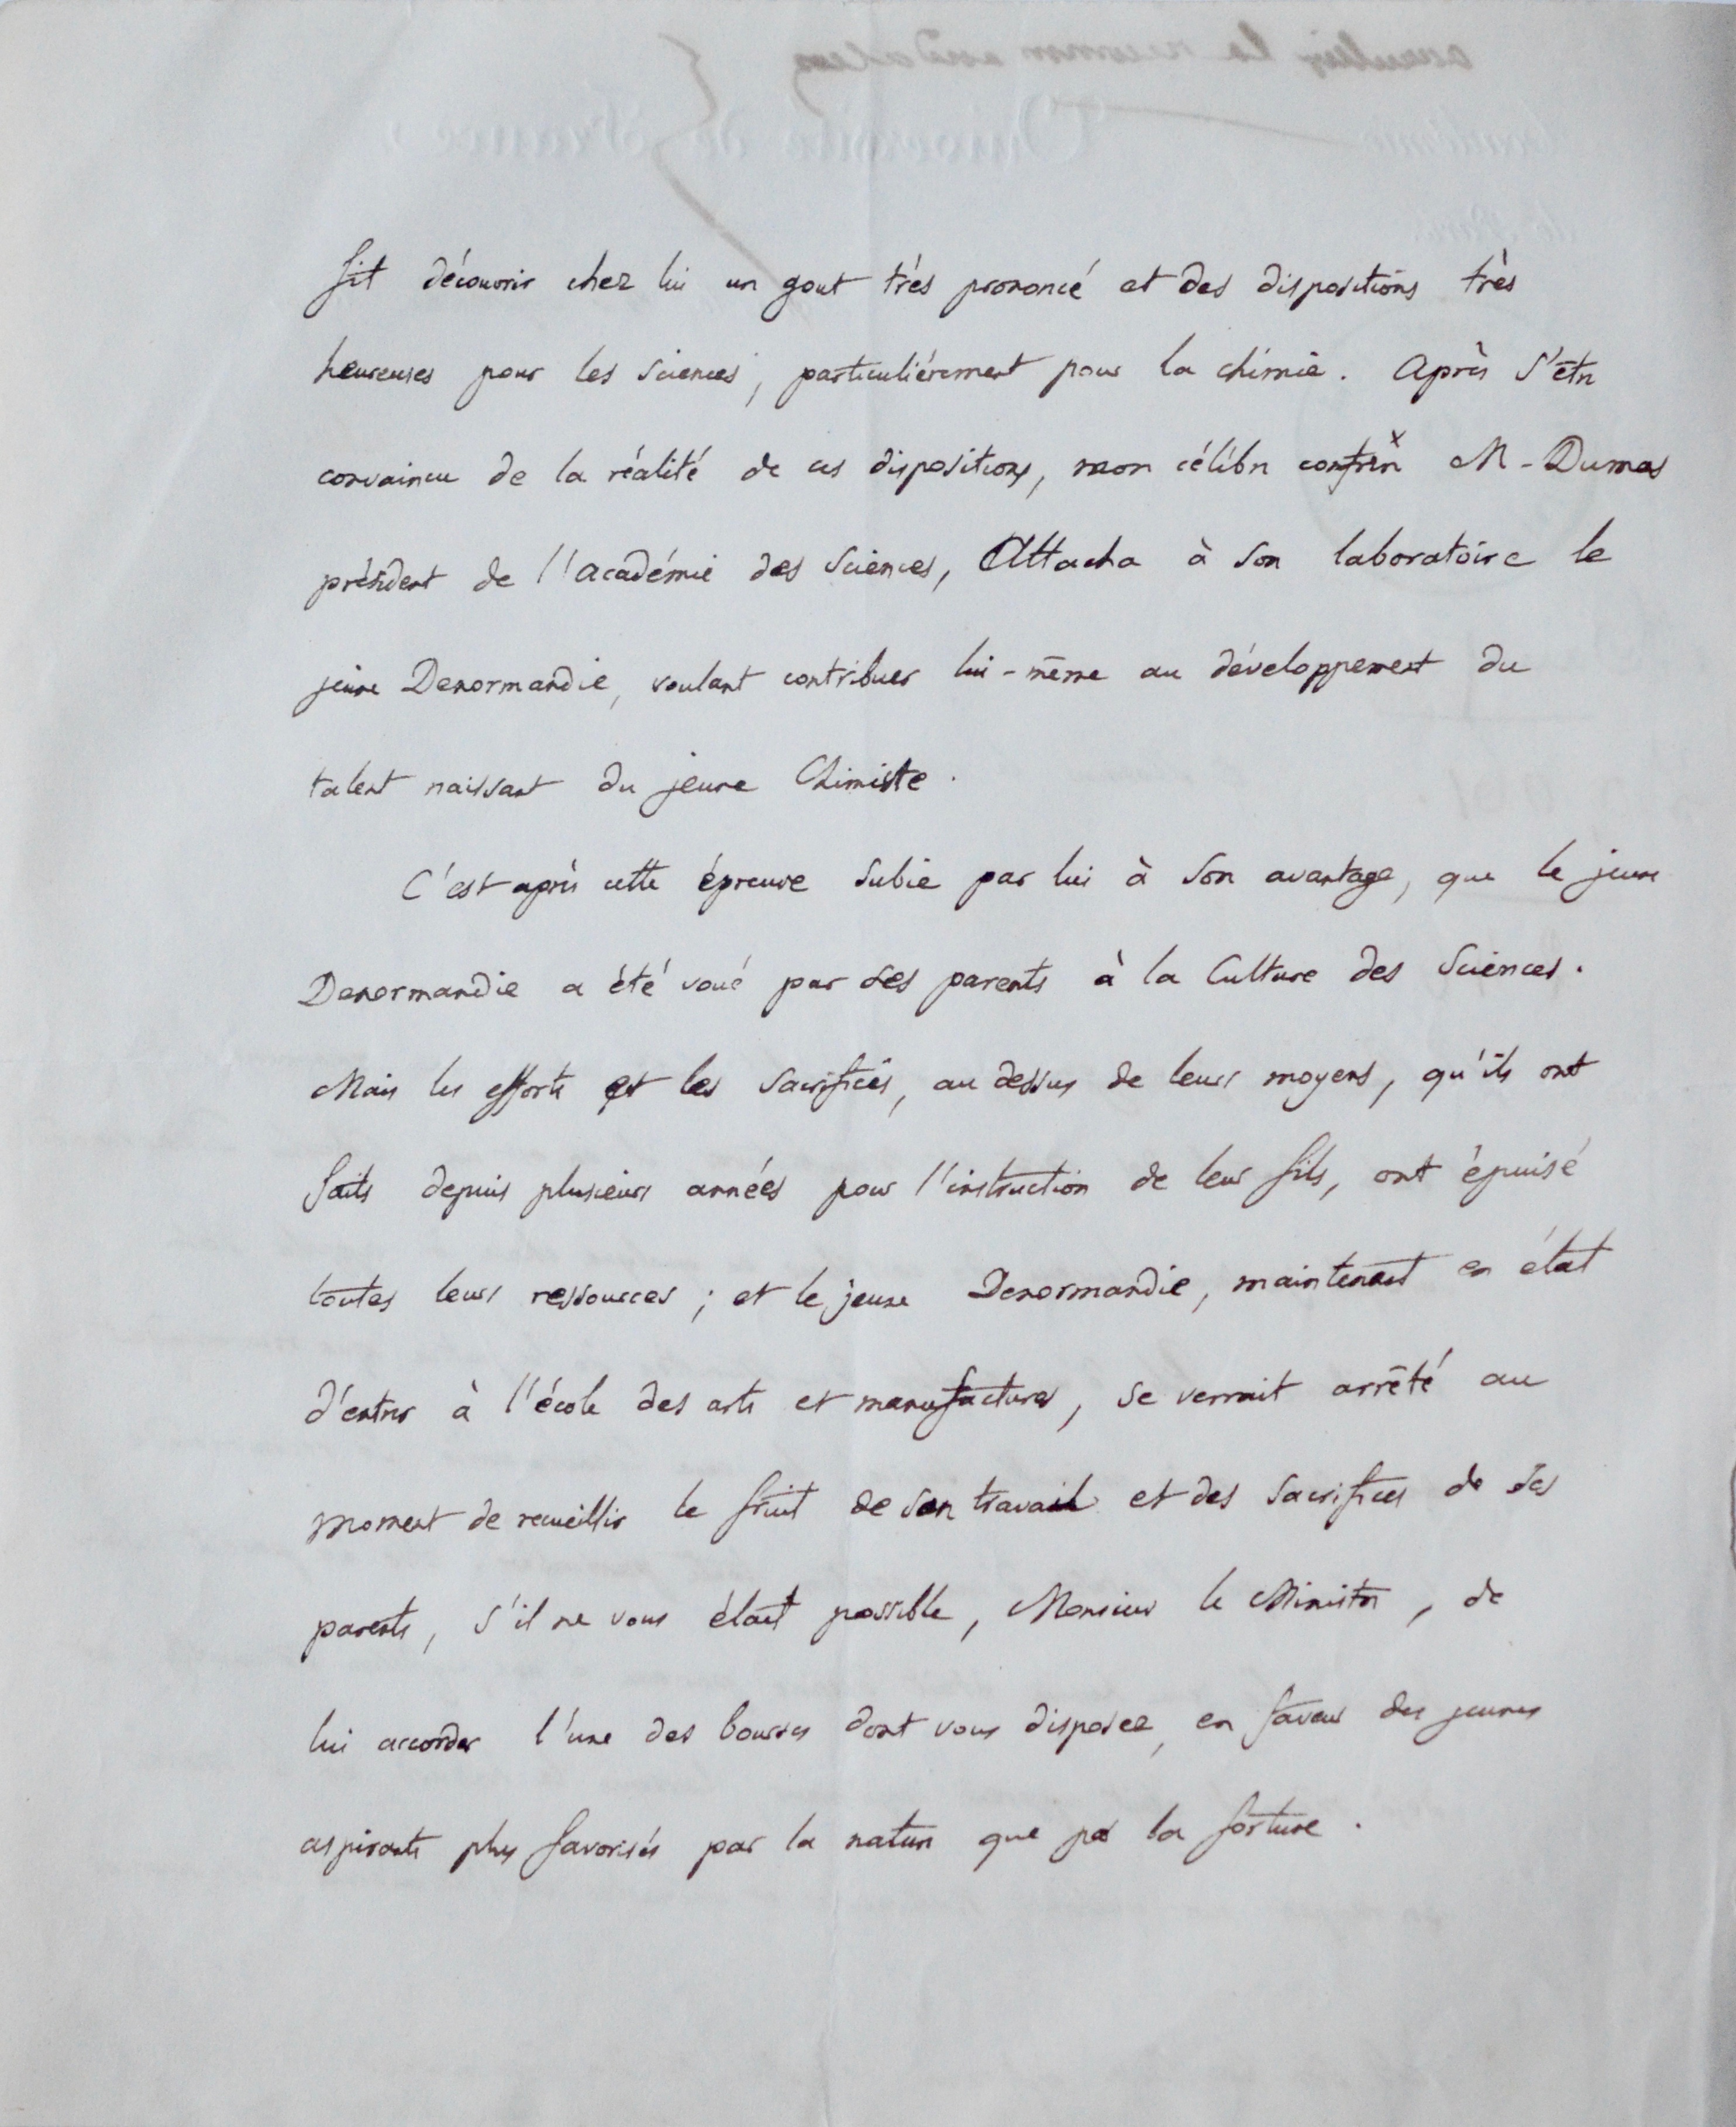 fit découvrir chez lui un gout très prononcé et des dispositions très
heureuses pour les sciences, particulièrement pour la chimie. Après s'être
convaincu de la réalité de ces dispositions, mon célèbre confrère x M. Dumas
président de l'académie des sciences, Attacha à son laboratoire le
jeune Denormandie, voulant contribuer lui-même au développement du
talent naissant du jeune Chimiste.
C'est après cette épreuve subie par lui à son avantage, que le jeune
Denormandie a été voué par ses parents à la Culture des Sciences.
Mais les efforts et les sacrifices, au dessus de leurs moyens, qu'ils ont
faits depuis plusieurs années pour l'instruction de leur fils, ont épuisé
toutes leurs ressources ; et le jeune Denormandie, maintenant en état
d'entrer à l'école des arts et manufactures, se verrait arrêté au
moment de recueillir le fruit de son travail et des sacrifices de ses
parents, s'il ne vous était possible, Monsieur le Ministre, de
lui accorder l'une des bourses dont vous disposez, en faveur des jeunes
aspirants plus favorisés par la nature que par la fortune.